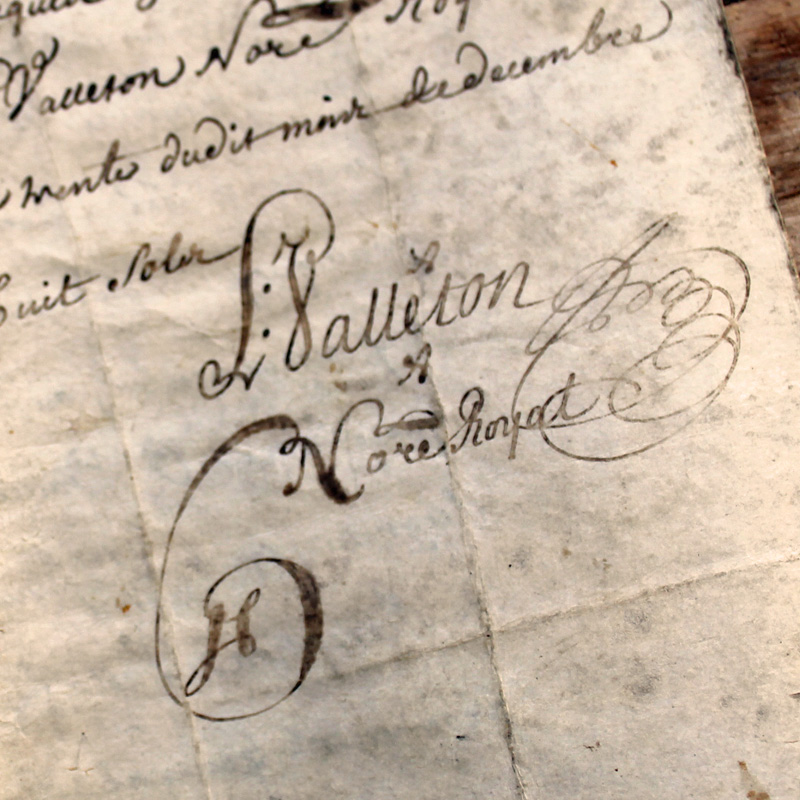 Valleton Nore Roy
trente dudit moix de decembre
huit solx
L: Valleton
Nore Royal